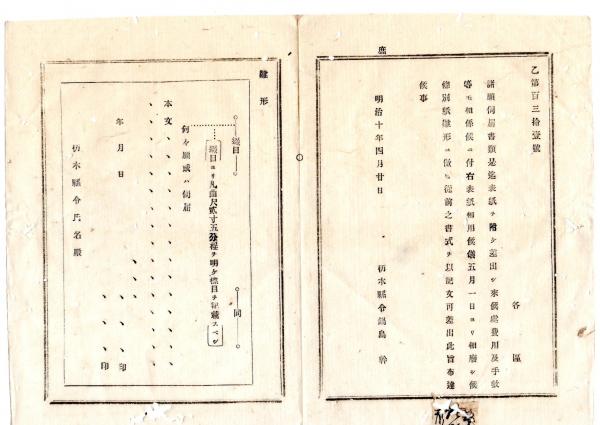 鹿
乙第百三拾壹號
各區
諸願伺届書類是迄表紙ヲ附シ差出シ來候處費用及手數
等モ相係候ニ付右表紙相用候儀五月一日ヨリ相廢シ候
條別紙雛形ニ傚ヒ從前之書式ヲ以記文可差出此旨布達
候事
明治十年四月廿日
栃木縣令鍋島幹
雛形
綴目
同
綴目ヨリ凡曲尺貳寸五分程ヲ明ケ標目ヲ記載スベシ
何々願或ハ伺届
本文、、、、、、、、、、
、、、、、、、、
年月日
、、、印
、、、印
栃木縣令氏名殿